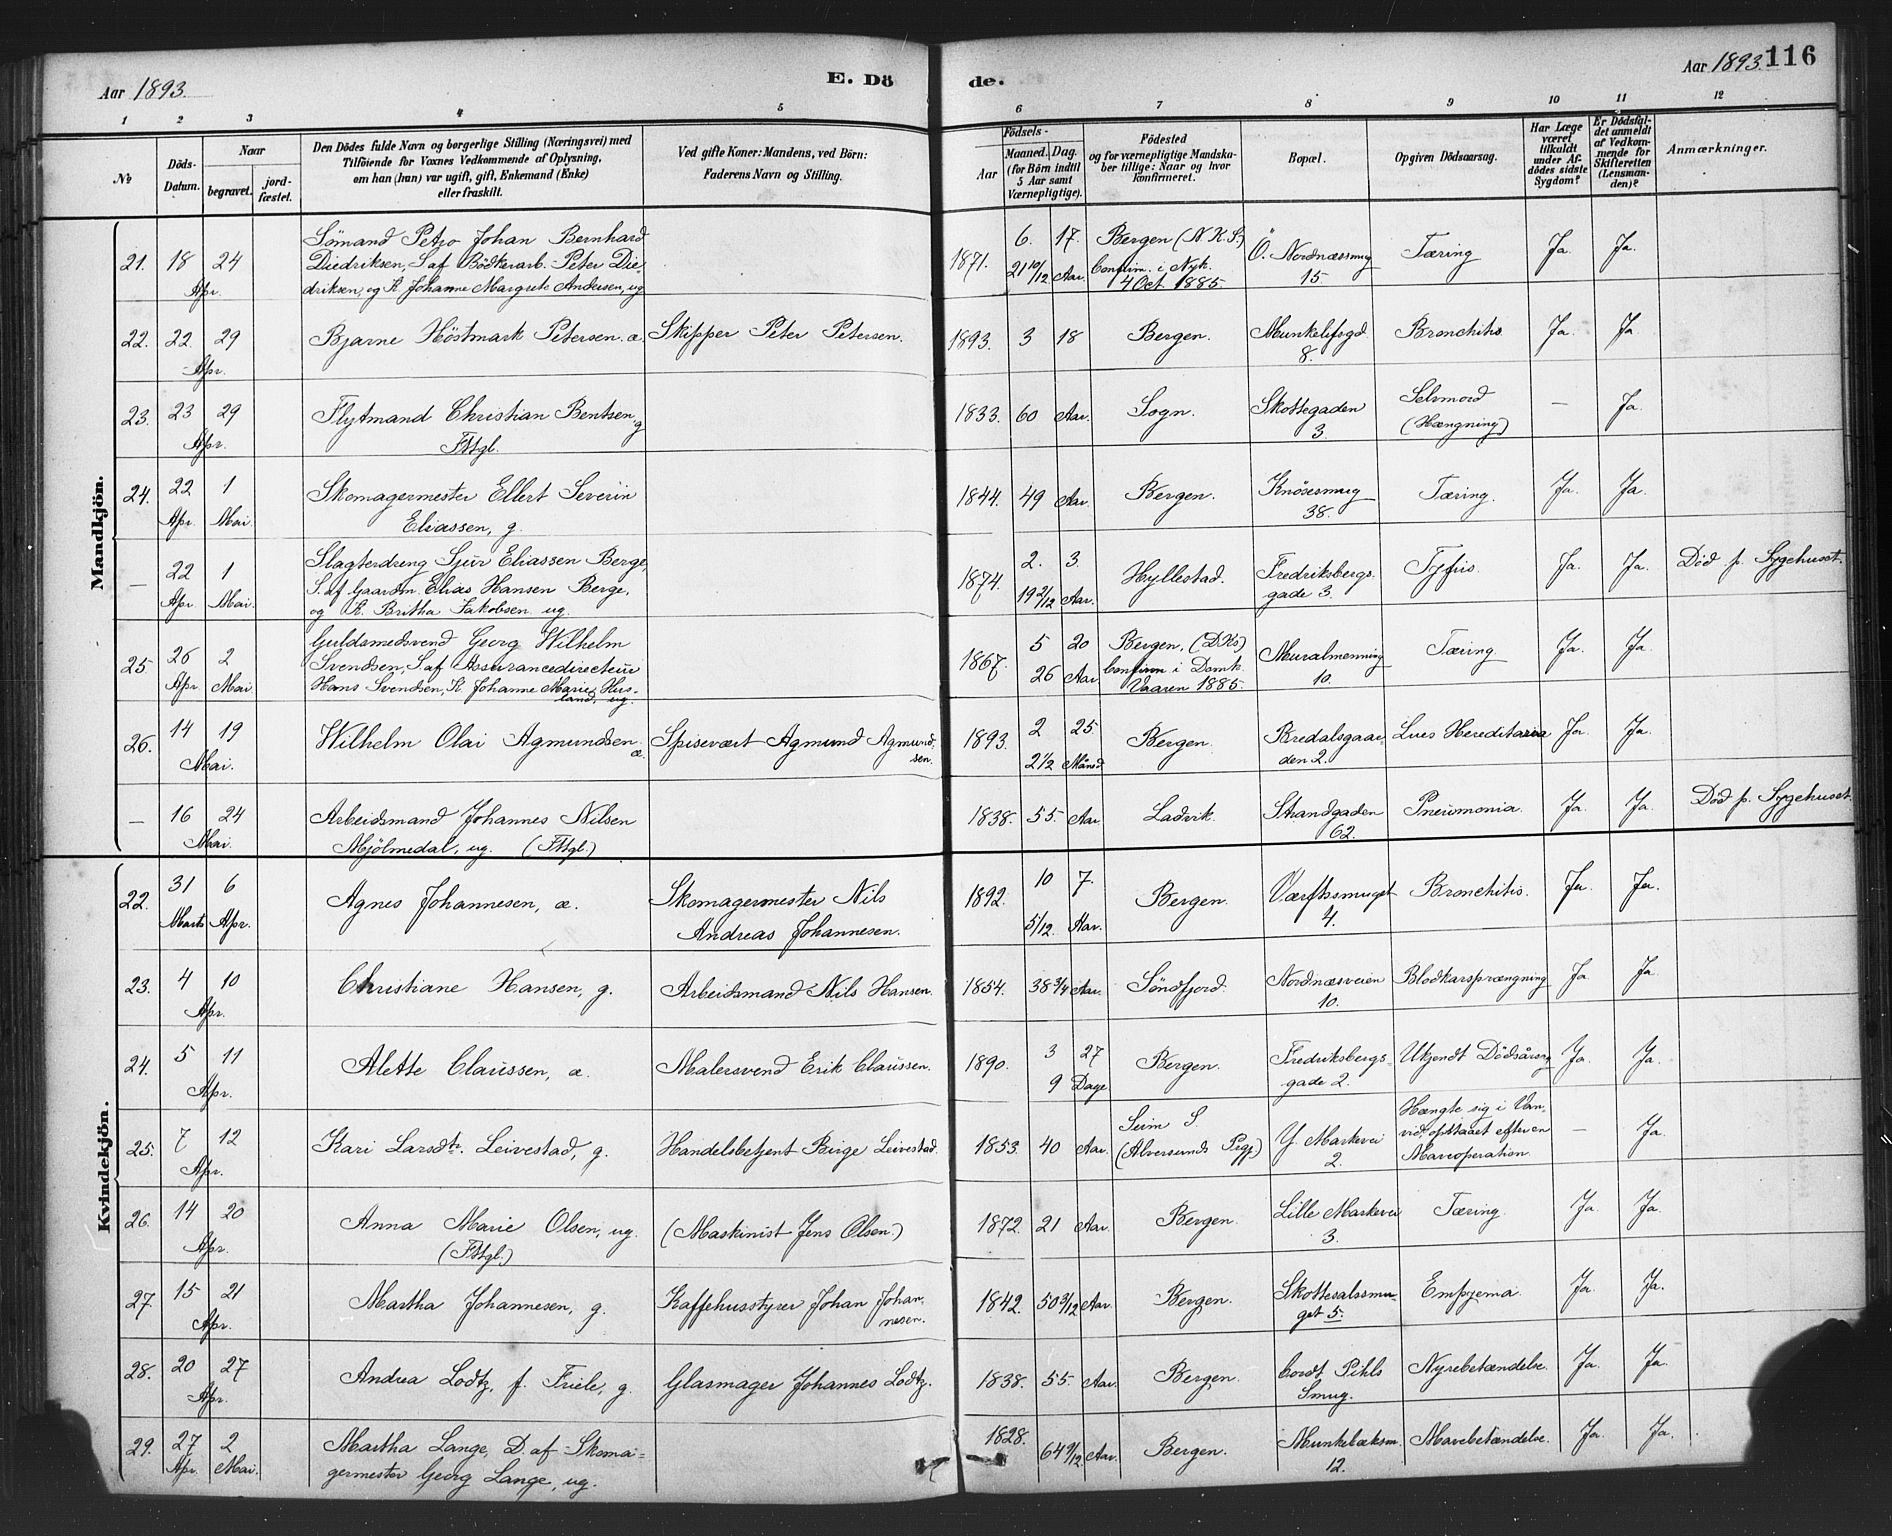 Aar 1893.
E. Dö de.
Aar 1893. 116
1 2 3 4 5 6 7 8 9 10 11 12
№
Döds-Datum.
Naar
begravet.
jord-fæstet.
Den Dödes fulde Navn og borgerlige Stilling (Næringsvei) med
Tilföiende for Voxnes Vedkommende af Oplysning,
om han (hun) var ugift, gift, Enkemand (Enke)
eller fraskilt.
Ved gifte Koner: Mandens, ved Börn:
Faderens Navn og Stilling.
Födsels-
Aar
Maaned. Dag.
(for Börn indtil
5 Aar samt
Værnepligtige).
Födested
og for værnepligtige Mandska-
ber tillige: Naar og hvor
konfirmeret.
Bopæl.
Opgiven Dödsaarsag.
Har Læge
været
tilkaldt
under Af-
dödes sidste
Sygdom?
Er Dödsfal-
det anmeldt
af Vedkom-
mende for
Skifteretten
(Lensman-
den)?
Anmærkninger.
Mandkjön.
21. 18 24 Apr. Sömand Petro Johan Bernhard
Diedriksen, S af Bödkerarb. Peter Die-
driksen, og K. Johanne Margrete Andersen, ug
1871. 6. 17. 21 10/12 Aar. Bergen (N. K. S.)
Confirm. i Nyk.
4 Oct. 1885.
Ö. Nordnæssmug
15.
Tæring Ja. Ja.
22. 22 29 Apr. Bjarne Höstmark Petersen. æ. Skipper Peter Petersen. 1893. 3 18 Bergen. Munkelifsgd.
8.
Bronchitis Ja. Ja.
23. 23 29 Apr. Flytmand Christian Bentsen, g
FMgl.
1833. 60 Aar. Sogn. Skottegaden
3.
Selvmord
(Hængning)
— Ja.
24. 22 Apr. 1 Mai. Skomagermester Ellert Severin
Eliassen, g.
1844. 49 Aar. Bergen. Knösesmug
38.
Tæring. Ja. Ja.
— 22 Apr. 1 Mai. Slagterdreng Sjur Eliassen Berge,
S. af Gaardm. Elias Hansen Berge,
og K. Britha Jakobsen ug.
1874. 2. 3. 19 2/12 Aar. Hyllestad. Fredriksbergs-
gade 3.
Tyfus. Ja. Ja. Död p. Sygehuset.
25. 26 Apr. 2 Mai. Guldsmedsvend Georg Wilhelm
Svendsen, S af Assurancedirecteur
Hans Svendsen, K. Johanne Marie Hus-
land, ug.
1867. 5 20 26 Aar Bergen, (DKs)
Confirm i Domk.
Vaaren 1885.
Muralmenning
10.
Tæring Ja. Ja.
26. 14 19 Mai. Wilhelm Olai Agmundsen. æ. Spisevært Agmund Agmund-
sen.
1893. 2 25. 2 1/2 Månd Bergen. Bredalsgaar-
den 2.
Lues Hereditaria Ja. Ja.
— 16 24 Mai. Arbeidsmand Johannes Nilsen
Mjölmedal, ug. (FMgl.)
1838. 55. Aar Ladvik. Strandgaden
62.
Pneumonia. Ja. Ja. Död p. Sygehuset.
Kvindekjön.
22. 31 Marts 6 Apr. Agnes Johannesen, æ. Skomagermester Nils
Andreas Johannesen.
1892. 10 7. 5/12. Aar. Bergen. Værftssmuget
4.
Bronchitis. Ja. Ja.
23. 4 10 Apr. Christiane Hansen, g. Arbeidsmand Nils Hansen. 1854. 38 3/4 Aar. Söndfjord. Nordnæsveien
10.
Blodkarsprængning Ja Ja.
24. 5 11 Apr. Alette Claussen, æ. Malersvend Erik Claussen. 1890. 3 27 9 Dage Bergen. Fredriksbergs-
gade 2.
Ukjendt Dödsårsag Ja. Ja.
25. 7 12 Apr. Kari Larsdtr. Leivestad, g. Handelsbetjent Birge Leivestad. 1853. 40 Aar. Seim S.
(Alversunds Prgj.)
Y. Markvei
2.
Hængte sig i Van-
vid opstaaet efter en
Maveoperation.
— Ja.
26. 14 20 Apr. Anna Marie Olsen, ug.
(FMgl.)
(Maskinist Jens Olsen.) 1872. 21 Aar. Bergen. Lille Markevei
3.
Tæring. Ja. Ja.
27. 15 21 Apr. Martha Johannesen, g. Kaffehusstyrer Johan Johan-
nesen.
1842. 50 3/12 Aar. Bergen. Skottesalssmu-
get 5.
Empyema Ja. Ja.
28. 20 27 Apr. Andrea Lodtz, f. Friele, g. Glasmager Johannes Lodtz. 1838. 55. Aar. Bergen. Cordt Pihls
Smug.
Nyrebetændelse. Ja. Ja.
29. 27 Apr. 2 Mai. Martha Lange, D. af Skoma-
germester Georg Lange, ug.
1828. 64 9/12 Aar. Bergen. Munkebæksm.
12.
Mavebetændelse. Ja. Ja.